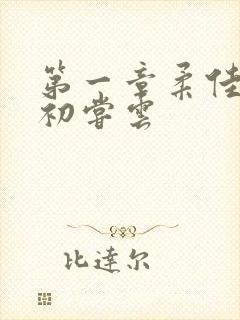 第一章柔佳
初尝云
比達尔